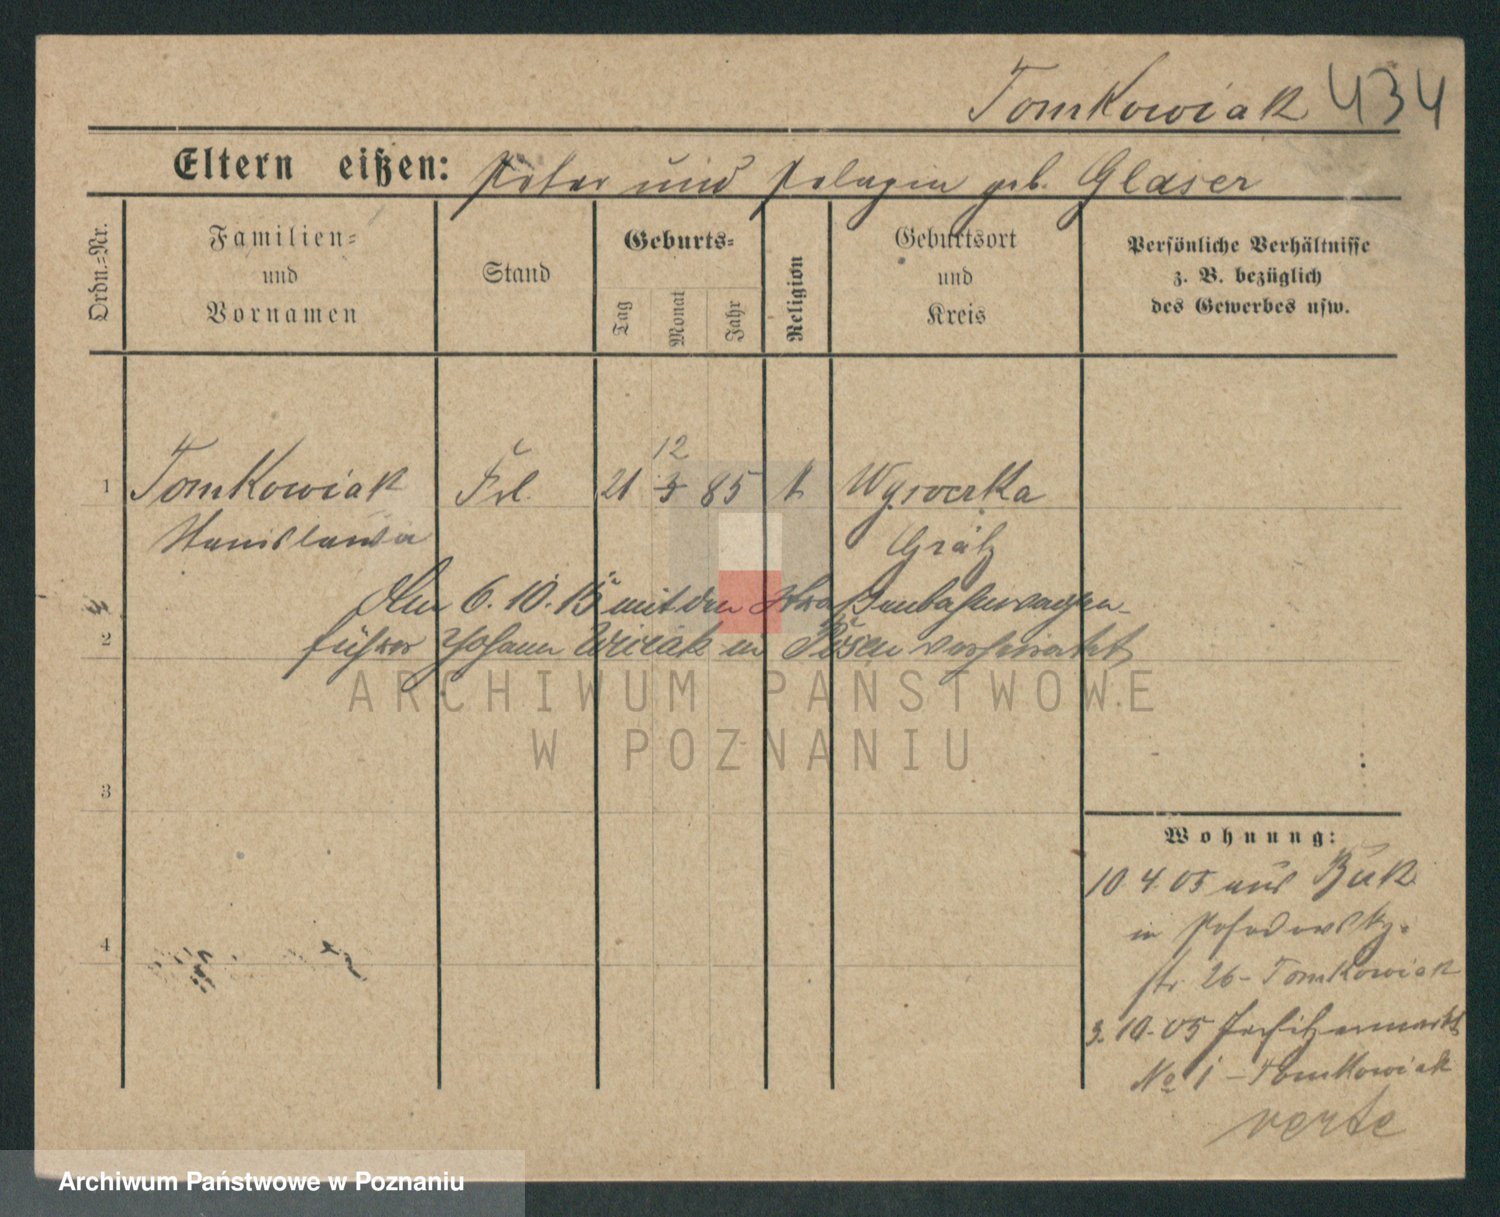 Tomkowiak 434
Eltern eißen: Peter und Pelagia geb. Glaser
Ordn.-Nr.
Familien-
und
Vornamen
Stand
Geburts-
Tag
Monat
Jahr
Religion
Geburtsort
und
Kreis
Persönliche Verhältnisse
z. B. bezüglich
des Gewerbes usw.
12
1 Tomkowiak Frl. 21 3 85 k Wysocrka
Stanislawa Grätz
Am 6. 10. 15 mit dem Straßenbahnwagen-
2 führer Johann in Posen verheiratet
ARCHIWUM PAŃSTWOWE
W POZNANIU
3
Wohnung:
10 4. 05 aus Buk
4
in Posadowsky-
str 26 - Tomkowiak
3. 10. 05 Jersitzermarkt
No 1 - Tomkowiak
verte
Archiwum Państwowe w Poznaniu